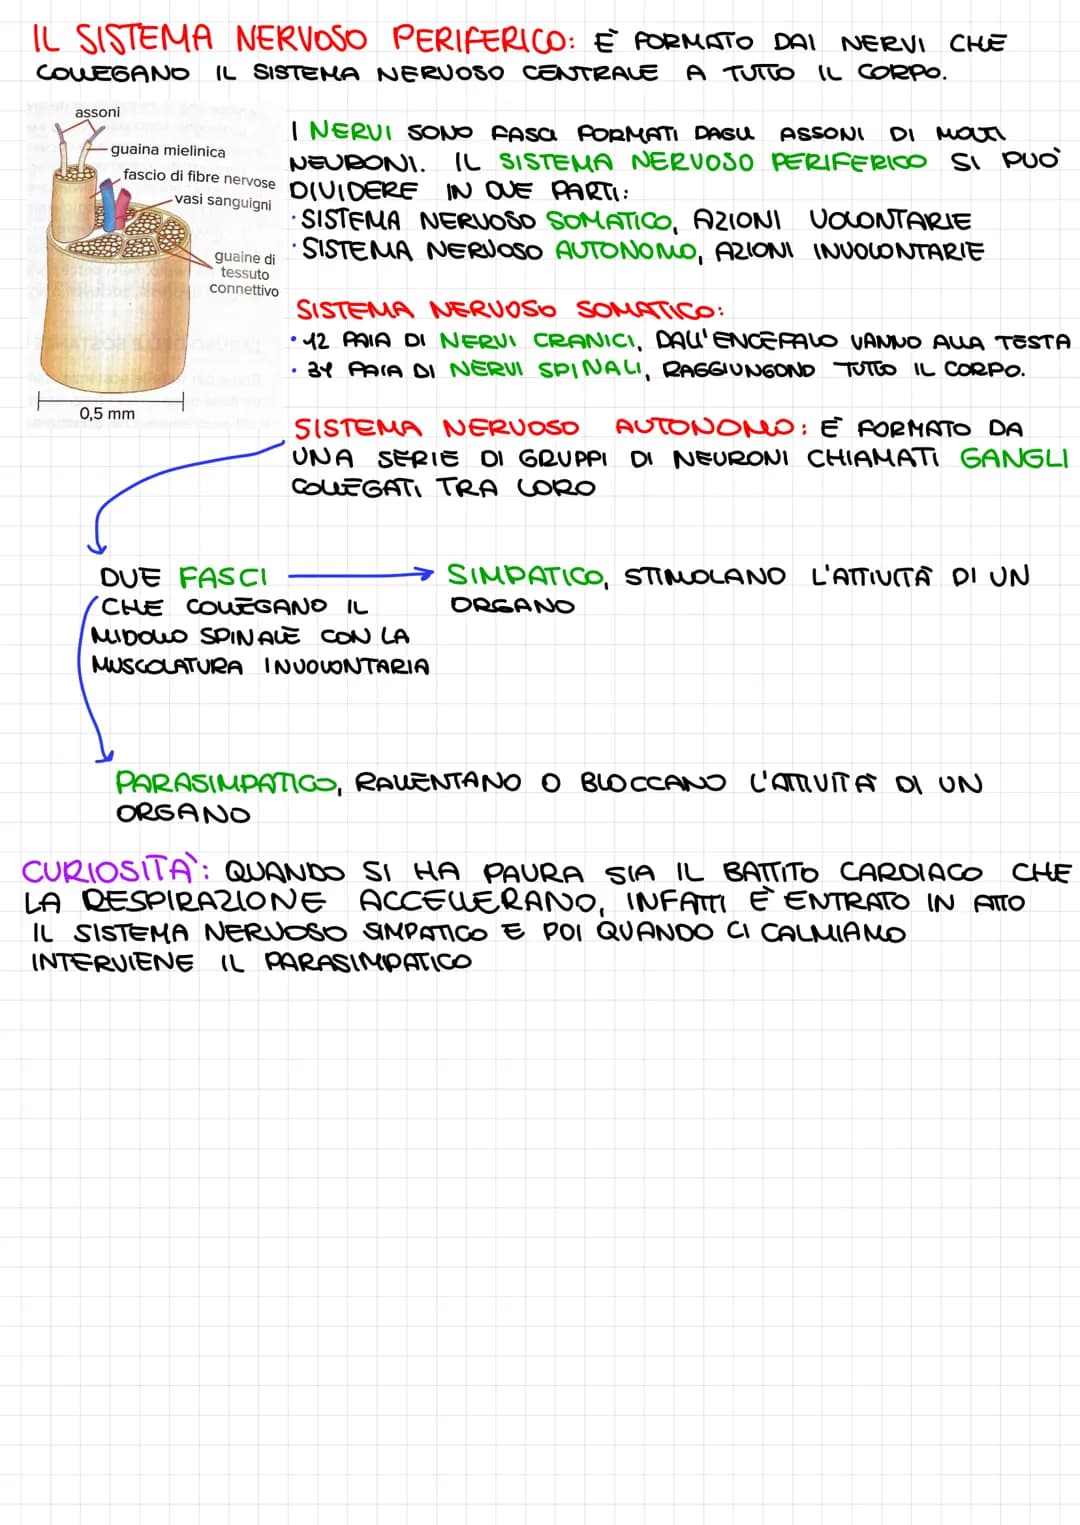 IL SISTEMA NERVOSO PERIFERICO: È FORMATO DAI NERVI CHE
COLLEGANO IL SISTEMA NERVOSO CENTRALE A TUTTO IL CORPO.
assoni
guaina mielinica
fascio di fibre nervose
vasi sanguigni
guaine di
tessuto
connettivo
0,5 mm
I NERVI SONO FASCI FORMATI DAGLI ASSONI DI MOLTI
NEURONI. IL SISTEMA NERVOSO PERIFERICO SI PUÒ
DIVIDERE IN DUE PARTI:
· SISTEMA NERVOSO SOMATICO, AZIONI VOLONTARIE
· SISTEMA NERVOSO AUTONOMO, AZIONI INVOLONTARIE
SISTEMA NERVOSO SOMATICO:
· 12 PAIA DI NERVI CRANICI, DALL'ENCEFALO VANNO ALLA TESTA
· 31 PAIA DI NERVI SPINALI, RAGGIUNGONO TUTTO IL CORPO.
SISTEMA NERVOSO AUTONOMO: È FORMATO DA
UNA SERIE DI GRUPPI DI NEURONI CHIAMATI GANGLI
COLLEGATI TRA LORO
DUE FASCI
CHE COLLEGANO IL
MIDOLLO SPINALE CON LA
MUSCOLATURA INVOLONTARIA
SIMPATICO, STIMOLANO L'ATTIVITÀ DI UN
ORGANO
PARASIMPATICO, RALLENTANO O BLOCCANO L'ATTIVITÀ DI UN
ORGANO
CURIOSITÀ: QUANDO SI HA PAURA SIA IL BATTITO CARDIACO CHE
LA RESPIRAZIONE ACCELLERANO, INFATTI È ENTRATO IN ATTO
IL SISTEMA NERVOSO SIMPATICO E POI QUANDO CI CALMIAMO
INTERVIENE IL PARASIMPATICO